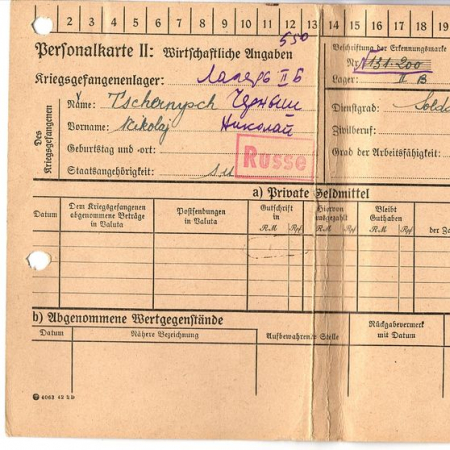 1 2 3 4 5 6 7 8 9 10 11 12 13 14 15 16 17 18 19
550
Personalkarte II: Wirtschaftliche Angaben
Beschriftung der Erkennungsmarke
Nr. 131-200
Kriegsgefangenenlager: Лагерь II Б
Lager: II B
Des Kriegsgefangenen
Name: Tschernysch Черныш
Dienstgrad: Solda
Vorname: Nikolaj Николай
Zivilberuf:
Geburtstag und -ort:
Grad der Arbeitsfähigkeit:
Russe
Staatsangehörigkeit: s u
a) Private Geldmittel
Datum
Dem Kriegsgefangenen abgenommene Beträge in Valuta
Postsendungen in Valuta
Gutschrift in
RM Rpf
Hiervon ausgezahlt
RM Rpf
Bleibt Guthaben
RM Rpf
der Za
b) Abgenommene Wertgegenstände
Datum
Nähere Bezeichnung
Aufbewahrende Stelle
Rückgabevermerk mit Datum
4063 42 2 D